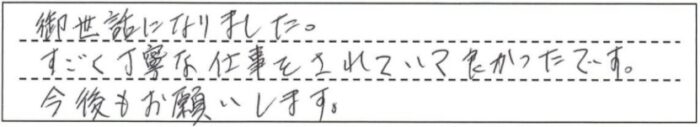 御世話になりました。
すごく丁寧な仕事をされていて良かったです。
今後もお願いします。